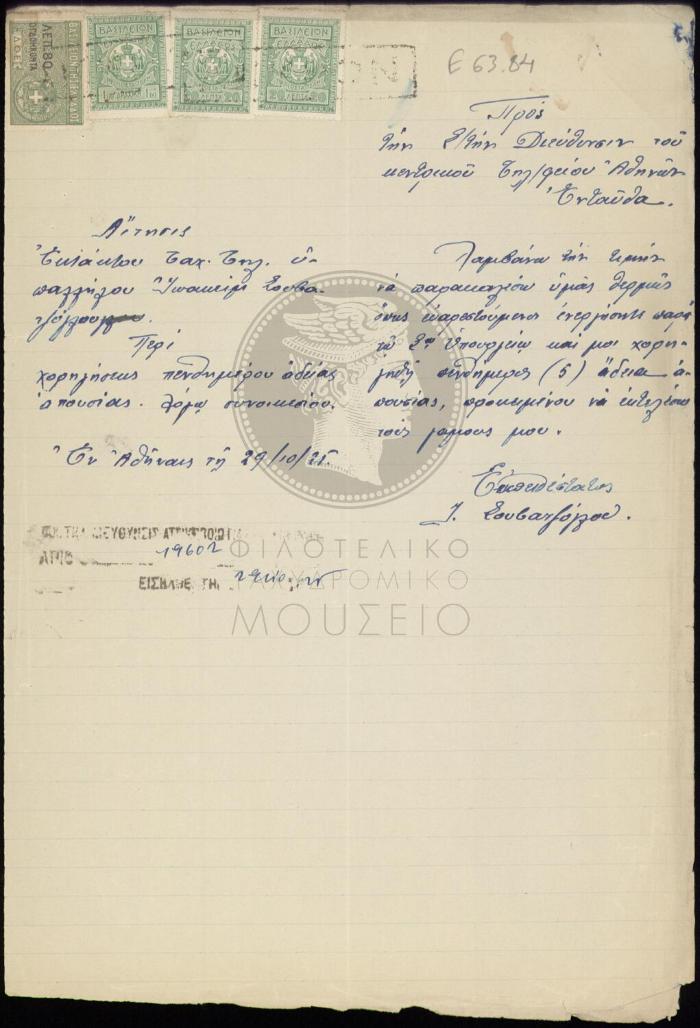 ΛΕΠ.80
ΟΓΔΟΗΚΟΝΤΑ
ΒΑΣΙΛΕΙΟΝ
ΒΑΣΙΛΕΙΟΝ
ΒΑΣΙΛΕΙΟΝ
Ε 63.84
Πρὸς
τὴν Σ/τὴν Διεύθυνσιν τοῦ
κεντρικοῦ Τηλ/φείου Ἀθηνῶν
Ἐνταῦθα.
Αἴτησις
Ἐκτάκτου Ταχ. Τηλ. ὑ-
παλλήλου Ἰωακεὶμ Σουβα-
τζόγλου
Περὶ
χορηγήσεως πενθημέρου ἀδείας
ἀπουσίας. λόγῳ συνοικεσίου.
Ἐν Ἀθήναις τῇ 29/10/25
Λαμβάνω τὴν τιμὴν
νὰ παρακαλέσω ὑμᾶς θερμῶς
ὅπως εὐαρεστούμενοι ἐνεργήσητε παρὰ
τῷ Σῷ Ὑπουργείῳ καὶ μοι χορη-
γηθῇ πενθήμερος (5) ἄδεια ἀ-
πουσίας, προκειμένου νὰ ἐκτελέσω
τοὺς γάμους μου.
Εὐπειθέστατος
Ι. Σουβατζόγλου.
19602
ΕΙΣΗΛΘΕ ΤΗ
ΦΙΛΟΤΕΛΙΚΟ
ΤΑΧΥΔΡΟΜΙΚΟ
ΜΟΥΣΕΙΟ